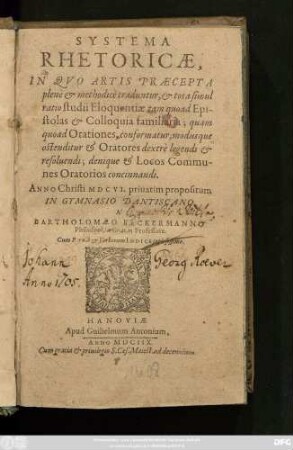 SYSTEMA
RHETORICÆ,
IN QVO ARTIS PRÆCEPTA
plenè & methodicè traduntur, & tota simul
ratio studii Eloquentiæ tam quoad Epi-
stolas & Colloquia familiaria; quàm
quoad Orationes, conformatur, modusque
ostenditur & Oratores dextrè legendi &
resolvendi; denique & Locos Commu-
nes Oratorios concinnandi.
ANNO Christi MDCVI. privatim propositum
IN GYMNASIO DANTISCANO
BARTHOLOMÆO KECKERMANNO
Philosophicarum Professore.
Cum & INDICE
Johann Georg Roever
Anno 1705.
HANOVIÆ
Apud Guilielmum Antonium,
ANNO MDCIIX.
Cum gratia & privilegio S. Cæs. Maiest. ad decennium
1608